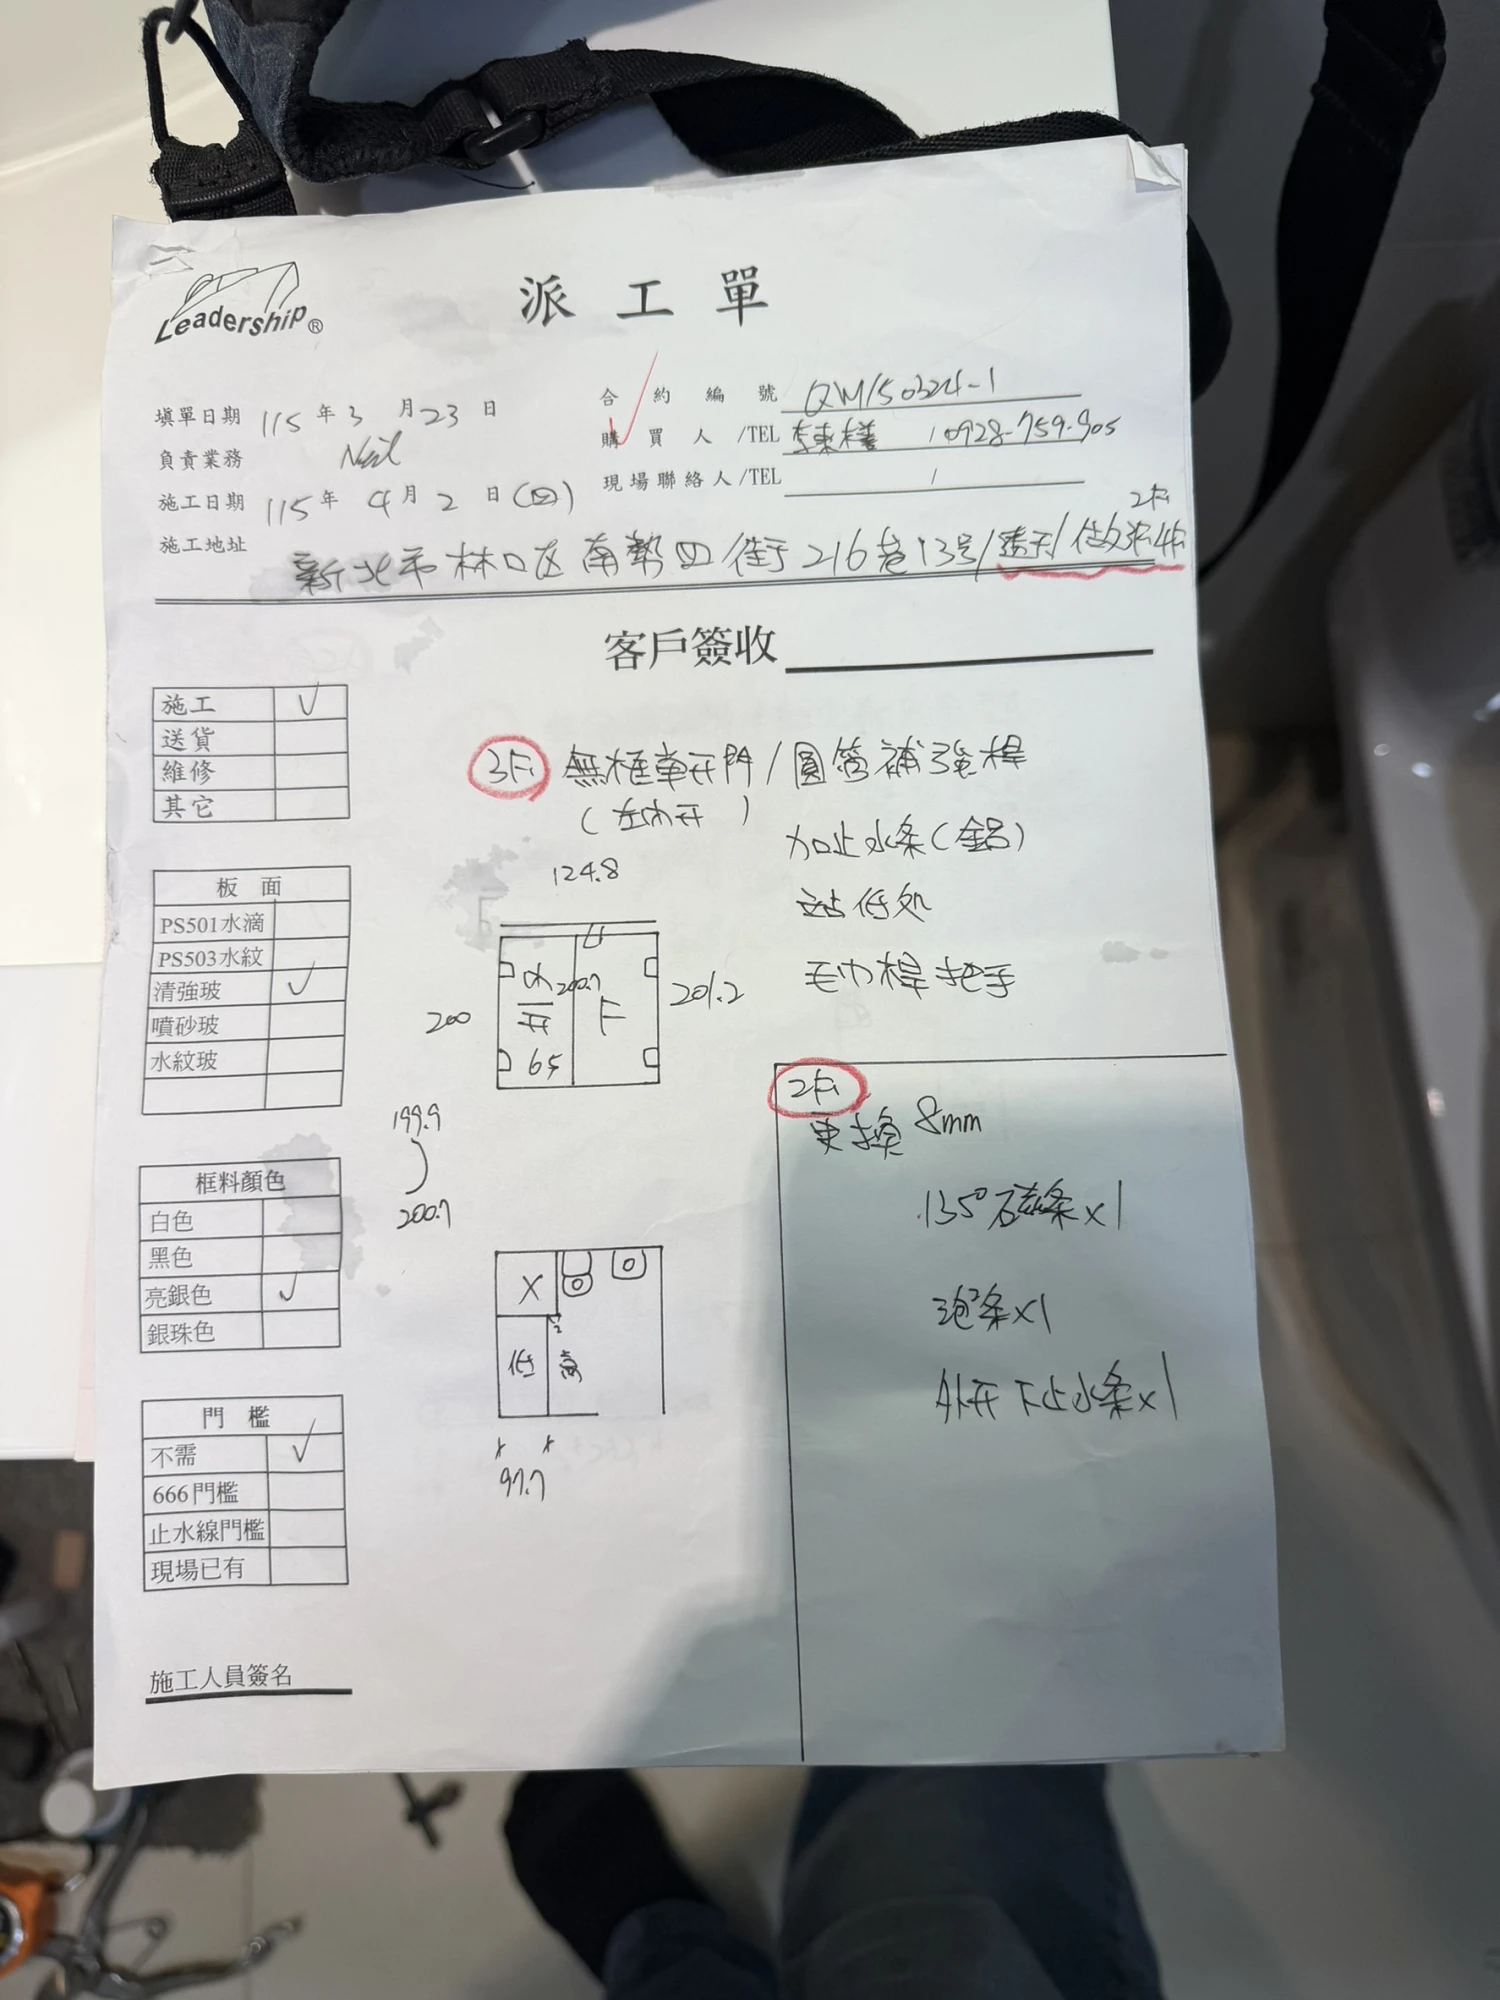 Leadership®
派工單
填單日期 115 年 3 月 23 日
合約編號 QM150324-1
負責業務 Neil
購買人/TEL / 0928-759-905
施工日期 115 年 4 月 2 日 (四)
現場聯絡人/TEL /
2F
施工地址 新北市林口區南勢四街216巷13号/透天/
客戶簽收
施工 ✓
送貨
維修
其它
3F 無框單开門/圓管補強桿
(左內开)
加止水条(鋁)
站低处
毛巾桿把手
124.8
200
内开
65
200.7
F
201.2
199.9
200.7
板面
PS501水滴
PS503水紋
清強玻 ✓
噴砂玻
水紋玻
2F
更換 8mm
135°磁条x1
泡条x1
外开下止水条x1
框料顏色
白色
黑色
亮銀色 ✓
銀珠色
X
低
高
97.7
門檻
不需 ✓
666門檻
止水線門檻
現場已有
施工人員簽名